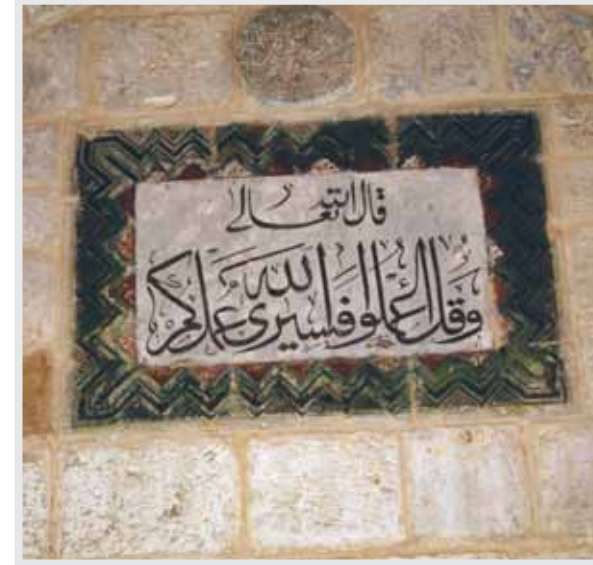 قال الله تعالى
وَقُل اعْملوا فَسيرى الله عَملكُم